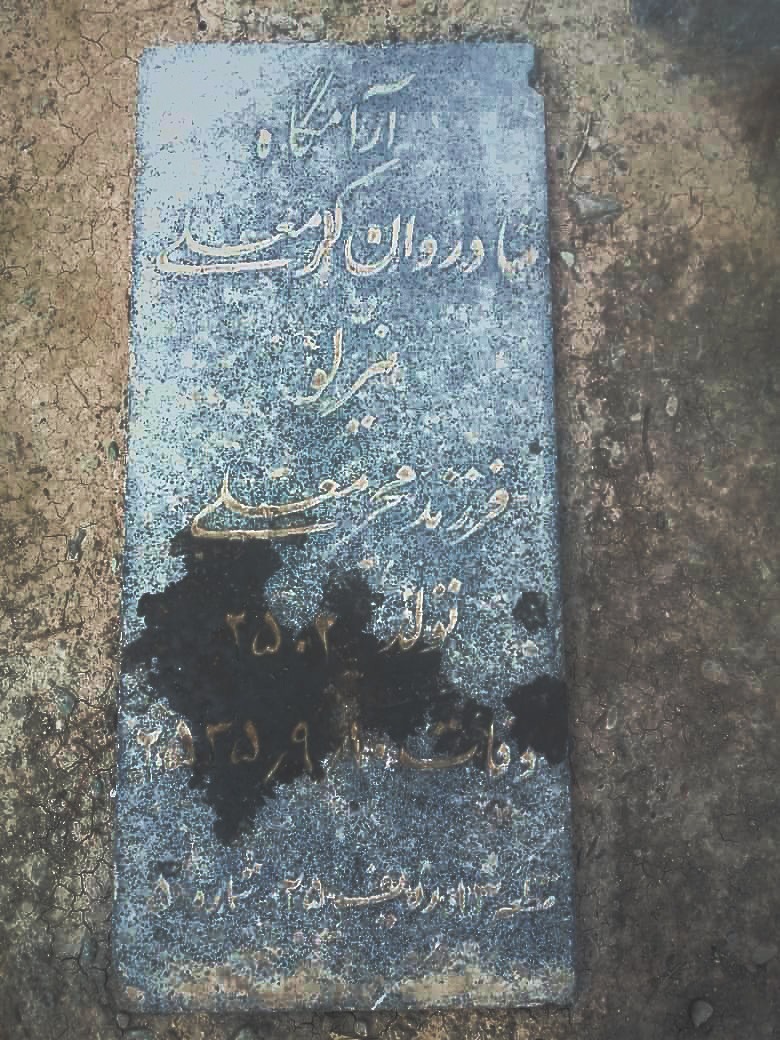 آرامگاه
شادروان کرمعلی
فرزند محرمعلی
تولد ۲۵۰۲
وفات ۹ر۲۵۳۵
قطعه ۱۳ ردیف ۲۵ شماره ۵